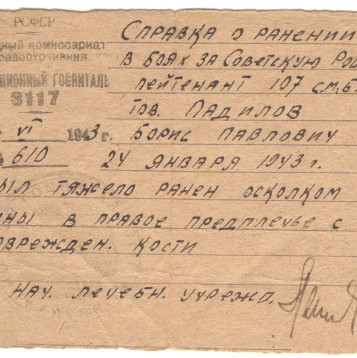 РСФСР
дный комиссариат
равоохранения
ционный Госпиталь
3117
VI 1943 г.
610
Справка о ранении
в боях за Советскую Род
лейтенант 107 см.б
тов. Падилов
Борис Павлович
24 января 1943 г.
ыл тяжело ранен осколком
ны в правое предплечье с
оврежден. кости
нач. лечебн. учрежд.